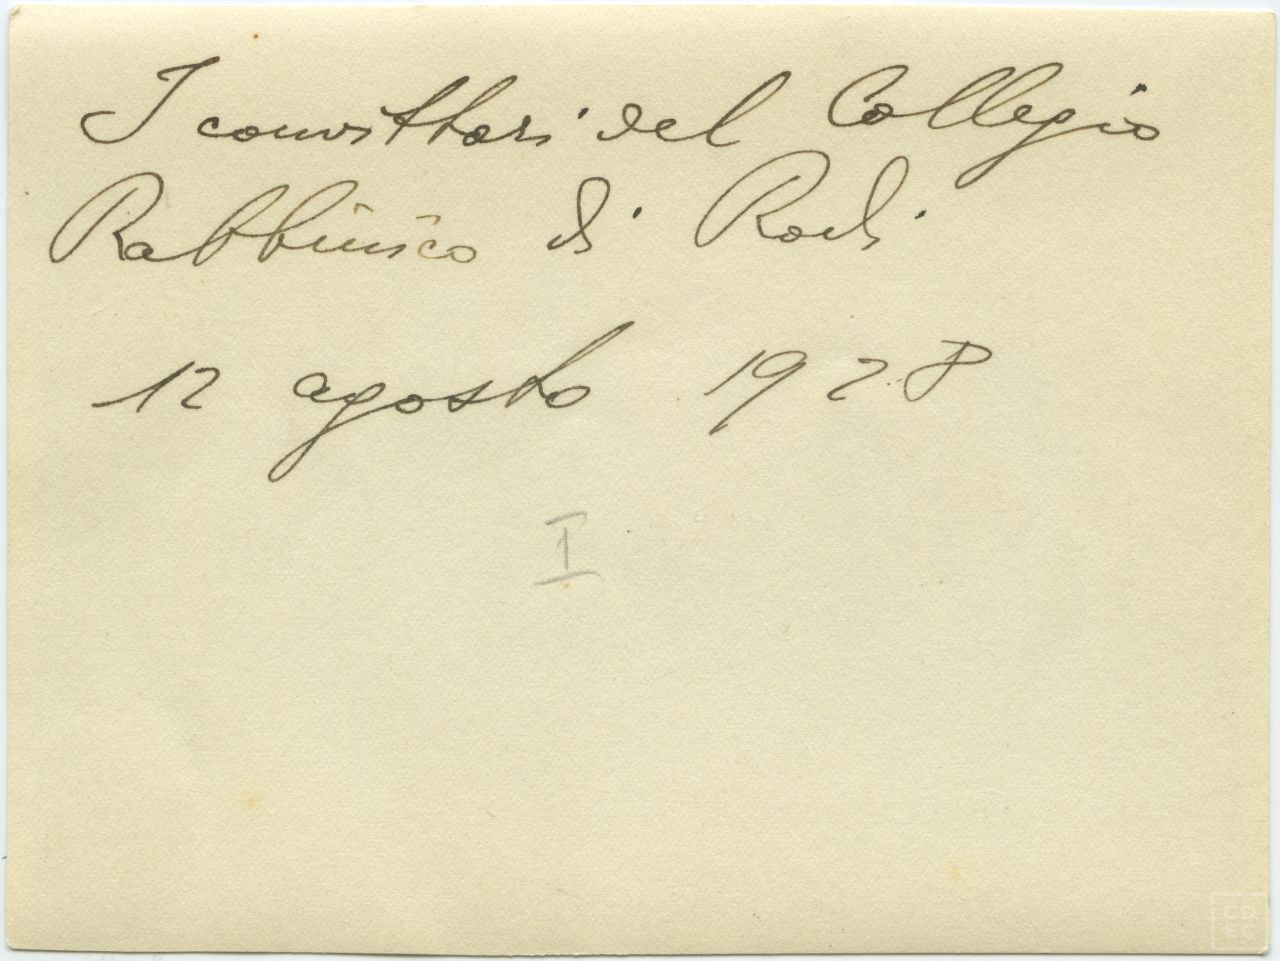 I convittori del Collegio
Rabbinico di Rodi
12 agosto 1928
I
CD
EC